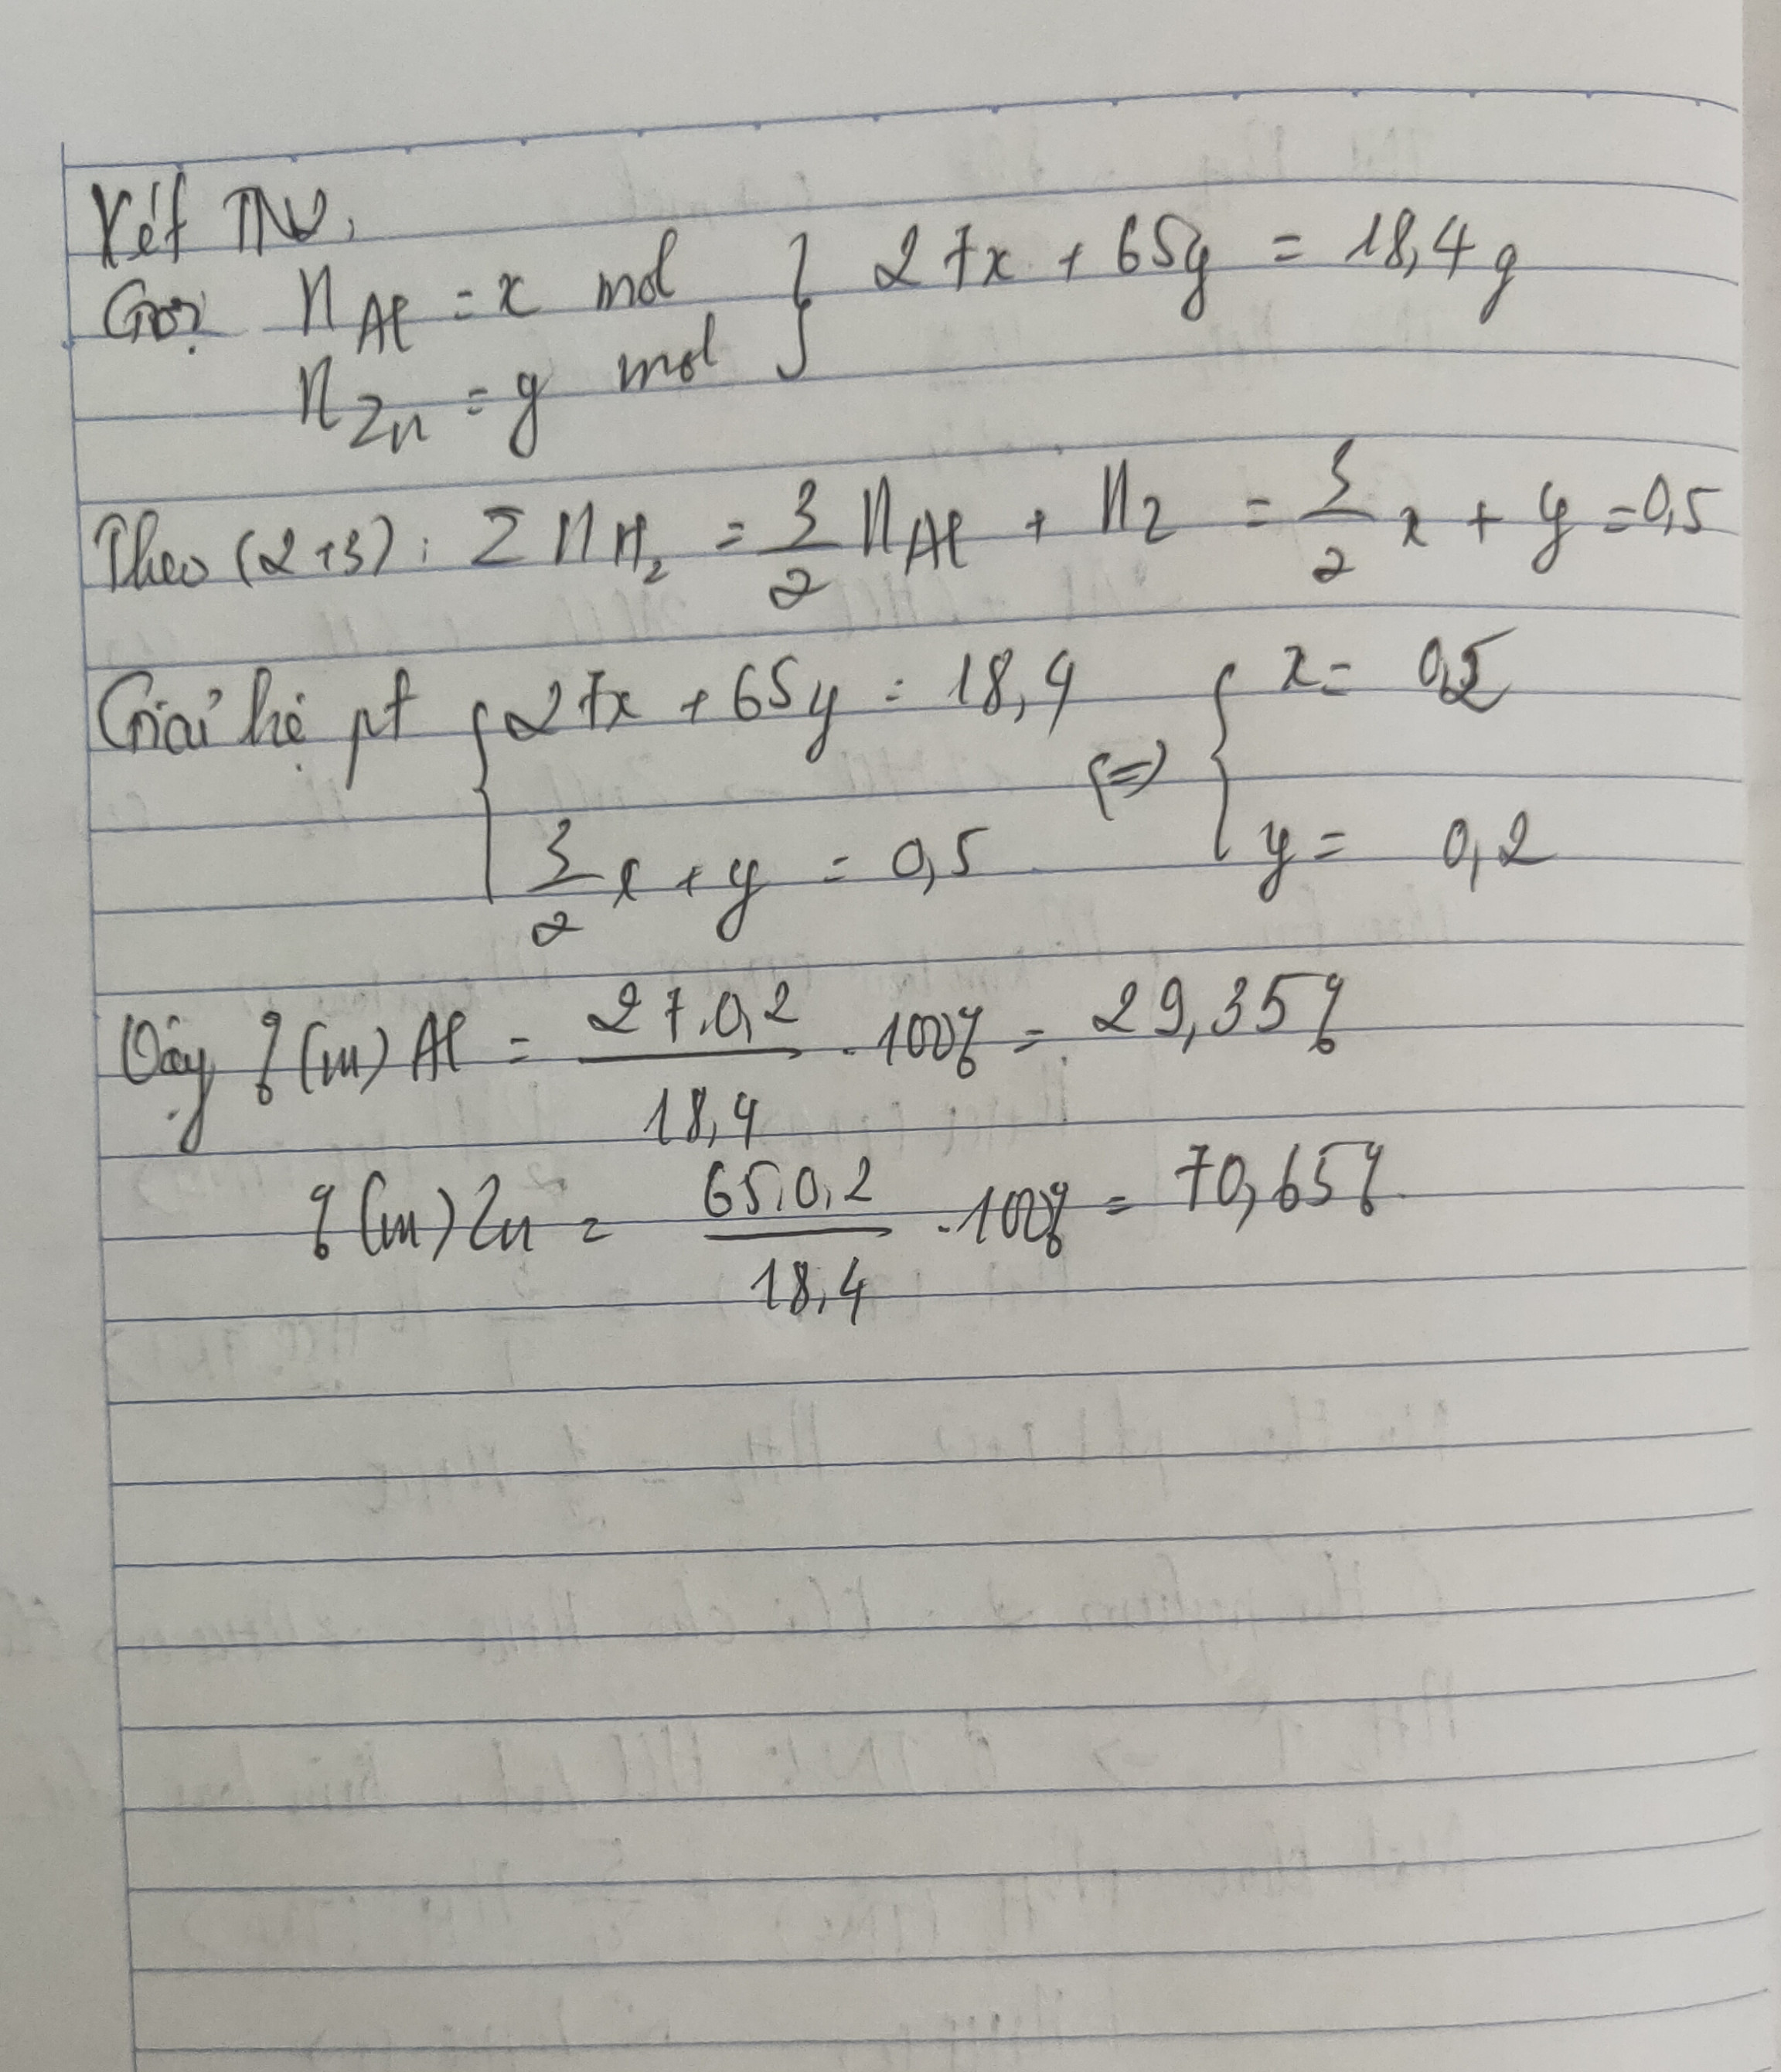 Xét TN1,
Gọi n Al = x mol } 27x + 65y = 18,4 g
n Zn = y mol
Theo (2+3): Σ n H₂ = 3/2 n Al + n Z = 3/2 x + y = 0,5
Giải hệ pt { 27x + 65y = 18,4 (=) { x = 0,2
3/2 x + y = 0,5 y = 0,2
Vậy % (m) Al = 27.0,2 / 18,4 . 100% = 29,35%
% (m) Zn = 65.0,2 / 18,4 . 100% = 70,65%